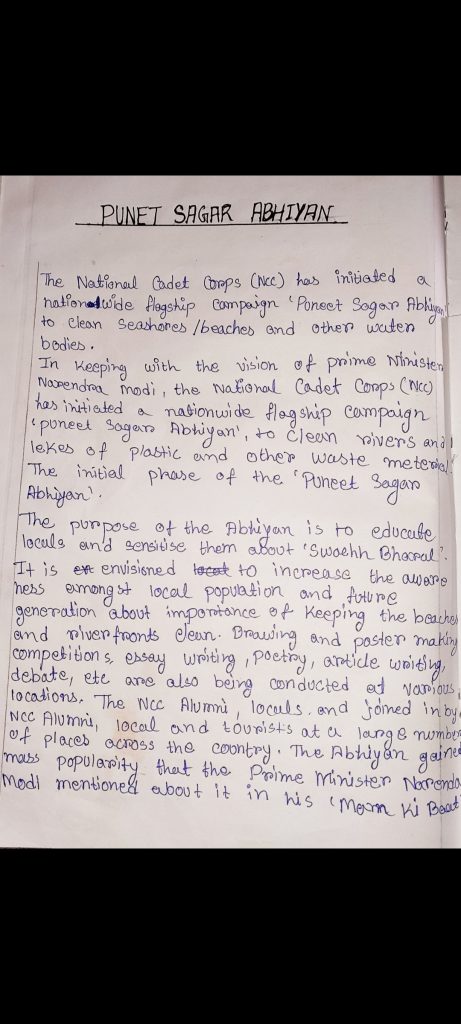 PUNET SAGAR ABHIYAN
The National Cadet Corps (Ncc) has initiated a
nationalwide flagship campaign 'Poneet Sagar Abhiyan'
to clean seashores/beaches and other water
bodies.
In Keeping with the vision of prime Minister
Narendra modi, the National Cadet Corps (NCC)
has initiated a nationwide flagship campaign
'puneet Sagar Abhiyan', to clean rivers and
lekes of plastic and other waste meterial.
The initial phase of the 'Puneet Sagar
Abhiyan'.
The purpose of the Abhiyan is to educate
locals and sensitise them about 'Swachh Bharat'.
It is envisioned to increase the aware
ness amongst local population and future
generation about importance of Keeping the beaches
and riverfronts clean. Drawing and poster making
competitions, essay writing, poetry, article writing,
debate, etc are also being conducted at various
locations. The NCC Alumni, locals, and joined in by
NCC Alumni, local and tourists at a large number
of places across the country. The Abhiyan gained
mass popularity that the Prime Minister Narenda
Modi mentioned about it in his 'Mann Ki Baat'